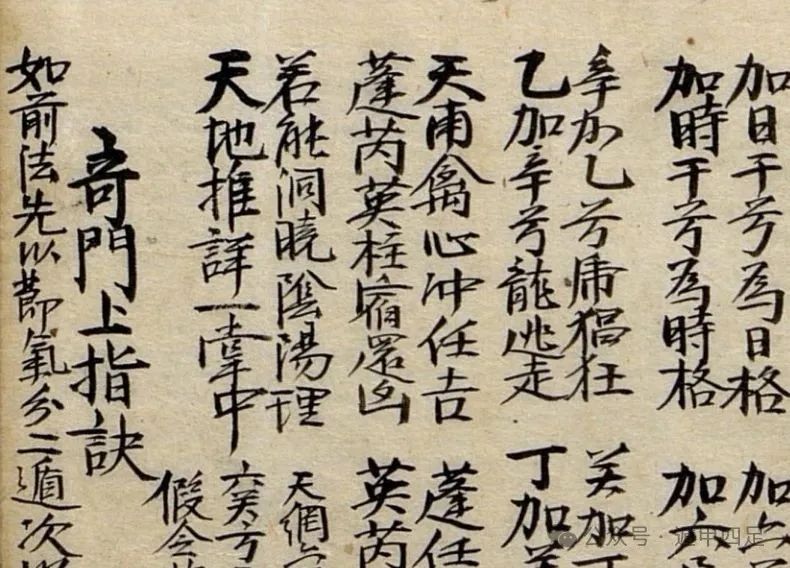 加日干兮為日格 加六
加時干兮為時格 加六
辛加乙兮虎猖狂 癸加丁
乙加辛兮龍逃走 丁加癸
天甫禽心冲任吉 蓬任
蓬芮英柱宿還凶 英芮
若能洞曉陰陽理 天網
天地推詳一掌中 六癸方
假令
奇門上指訣
如前法先以節氣分二遁次
公众号·遁甲四足